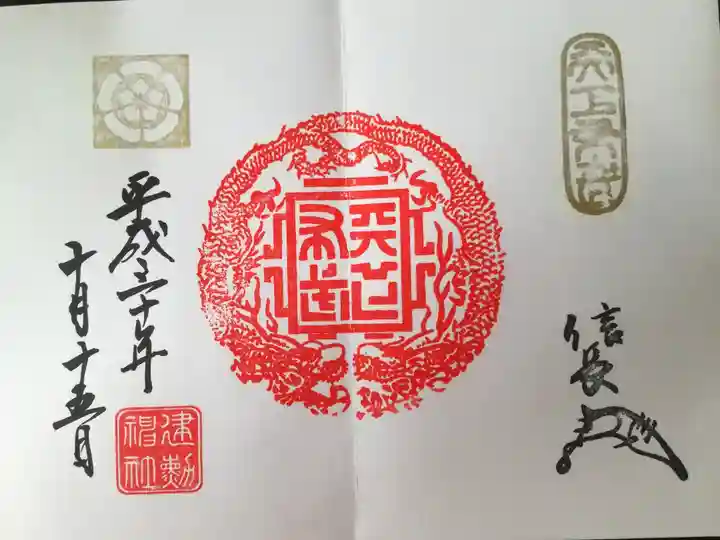 信長
天下
布武
平成三十年
十月十五日
建勲
神社